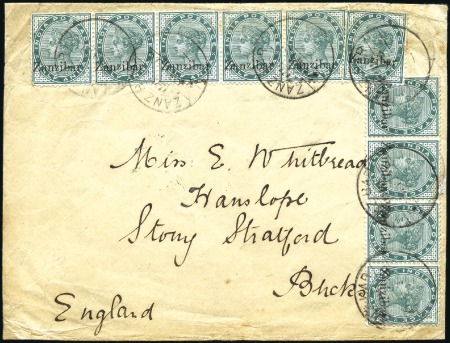 Zanzibar Zanzibar Zanzibar Zanzibar Zanzibar Zanzibar
Zanzibar
Zanzibar
Zanzibar
Zanzibar
Miss E. Whitbread
Hanslope
Stony Stratford
Bucks
England